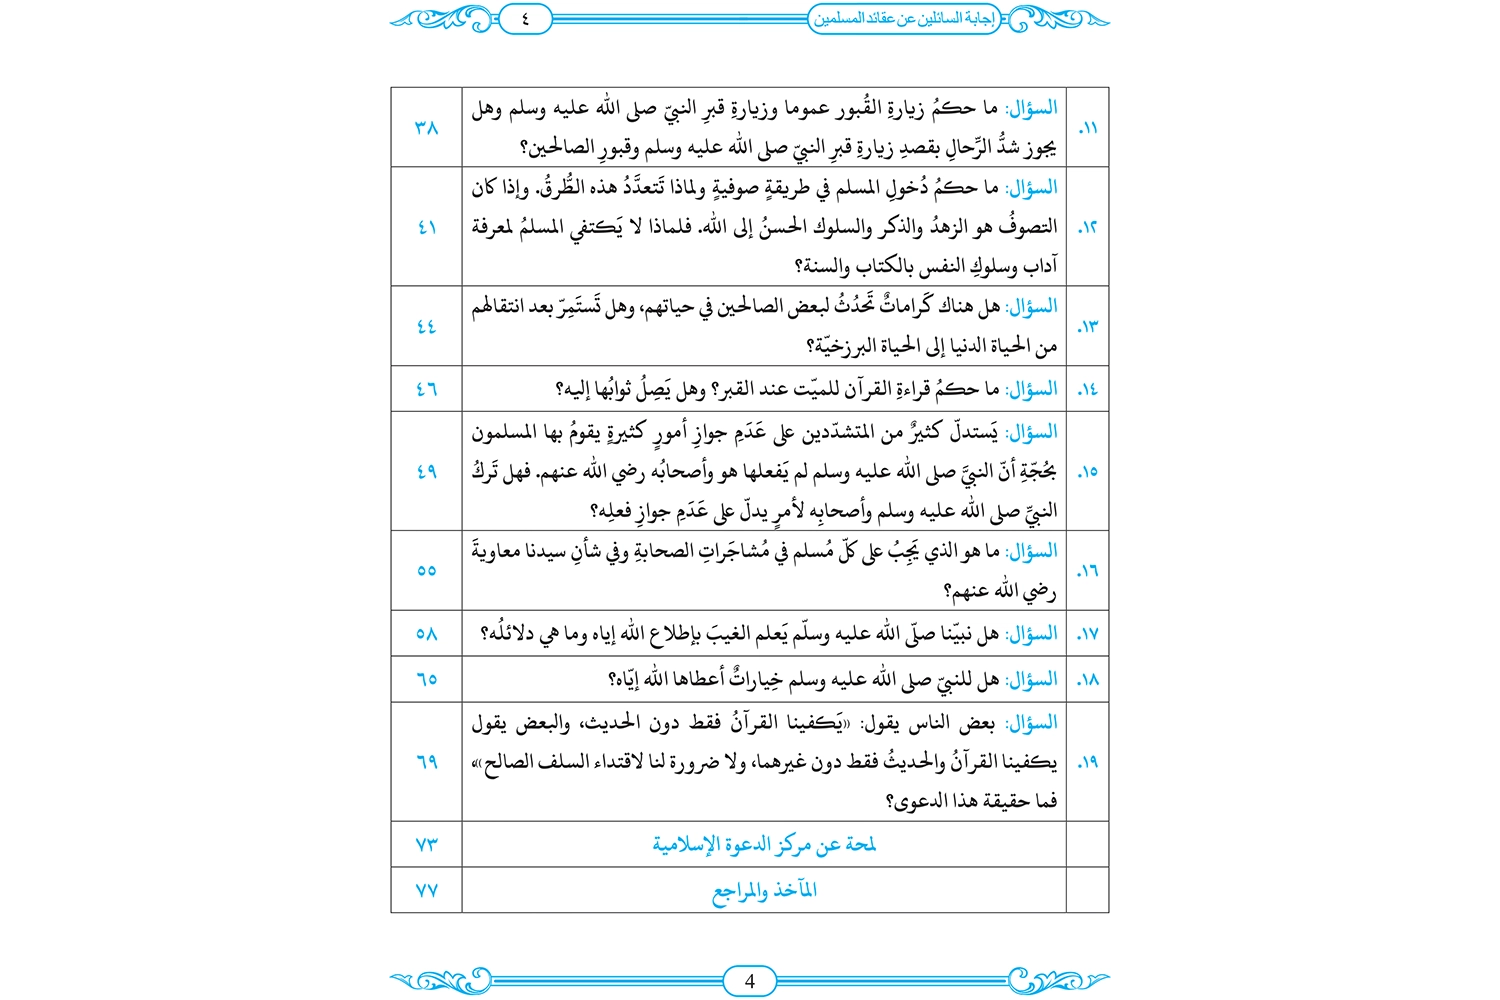 إجابة السائلين عن عقائد المسلمين
٤
.١١ السؤال: ما حكمُ زيارةِ القُبور عموما وزيارةِ قبرِ النبيّ صلى الله عليه وسلم وهل ٣٨
يجوز شدُّ الرِّحالِ بقصدِ زيارةِ قبرِ النبيّ صلى الله عليه وسلم وقبورِ الصالحين؟
.١٢ السؤال: ما حكمُ دُخولِ المسلم في طريقةٍ صوفيةٍ ولماذا تَتعدَّدُ هذه الطُّرقُ. وإذا كان
التصوفُ هو الزهدُ والذكر والسلوك الحسنُ إلى الله. فلماذا لا يَكتفي المسلمُ لمعرفة ٤١
آداب وسلوكِ النفس بالكتاب والسنة؟
.١٣ السؤال: هل هناك كَراماتٌ تَحدُثُ لبعض الصالحين في حياتهم، وهل تَستَمِرّ بعد انتقالهم ٤٤
من الحياة الدنيا إلى الحياة البرزخيّة؟
.١٤ السؤال: ما حكمُ قراءةِ القرآن للميّت عند القبر؟ وهل يَصِلُ ثوابُها إليه؟ ٤٦
.١٥ السؤال: يَستدلّ كثيرٌ من المتشدّدين على عَدَمِ جوازِ أمورٍ كثيرةٍ يقومُ بها المسلمون
بحُجّةِ أنّ النبيَّ صلى الله عليه وسلم لم يَفعلها هو وأصحابُه رضي الله عنهم. فهل تَركُ ٤٩
النبيِّ صلى الله عليه وسلم وأصحابِه لأمرٍ يدلّ على عَدَمِ جوازِ فعلِه؟
.١٦ السؤال: ما هو الذي يَجِبُ على كلّ مُسلم في مُشاجَراتِ الصحابةِ وفي شأنِ سيدنا معاويةَ ٥٥
رضي الله عنهم؟
.١٧ السؤال: هل نبيّنا صلّى الله عليه وسلّم يَعلم الغيبَ بإطلاع الله إياه وما هي دلائلُه؟ ٥٨
.١٨ السؤال: هل للنبيّ صلى الله عليه وسلم خِياراتٌ أعطاها الله إيّاه؟ ٦٥
.١٩ السؤال: بعض الناس يقول: «يَكفينا القرآنُ فقط دون الحديث، والبعض يقول
يكفينا القرآنُ والحديثُ فقط دون غيرهما، ولا ضرورة لنا لاقتداء السلف الصالح»، ٦٩
فما حقيقة هذا الدعوى؟
لمحة عن مركز الدعوة الإسلامية ٧٣
المآخذ والمراجع ٧٧
4